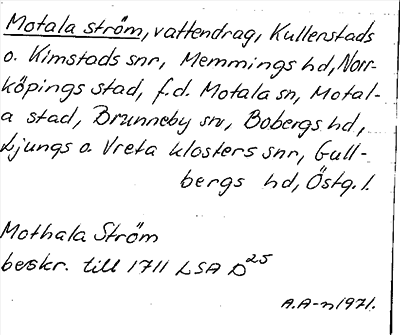 Motala ström, vattendrag, Kullerstads
o. Kimstads snr, Memmings hd, Norr-
köpings stad, f.d. Motala sn, Motal-
a stad, Brunneby sn, Bobergs hd,
Ljungs o. Vreta klosters snr, Gull-
bergs hd, Östg. l.
Mothala Ström
beskr. till 1711 LSA D25
A.A-n 1971.